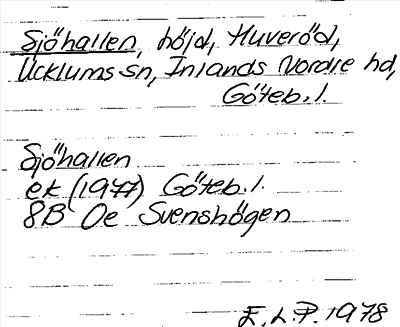 Sjöhallen, höjd, Huveröd,
Ucklums sn, Inlands Nordre hd,
Göteb. l.
Sjöhallen
ek (1977) Göteb. l.
8B 0e Svenshögen
E. L. P. 1978